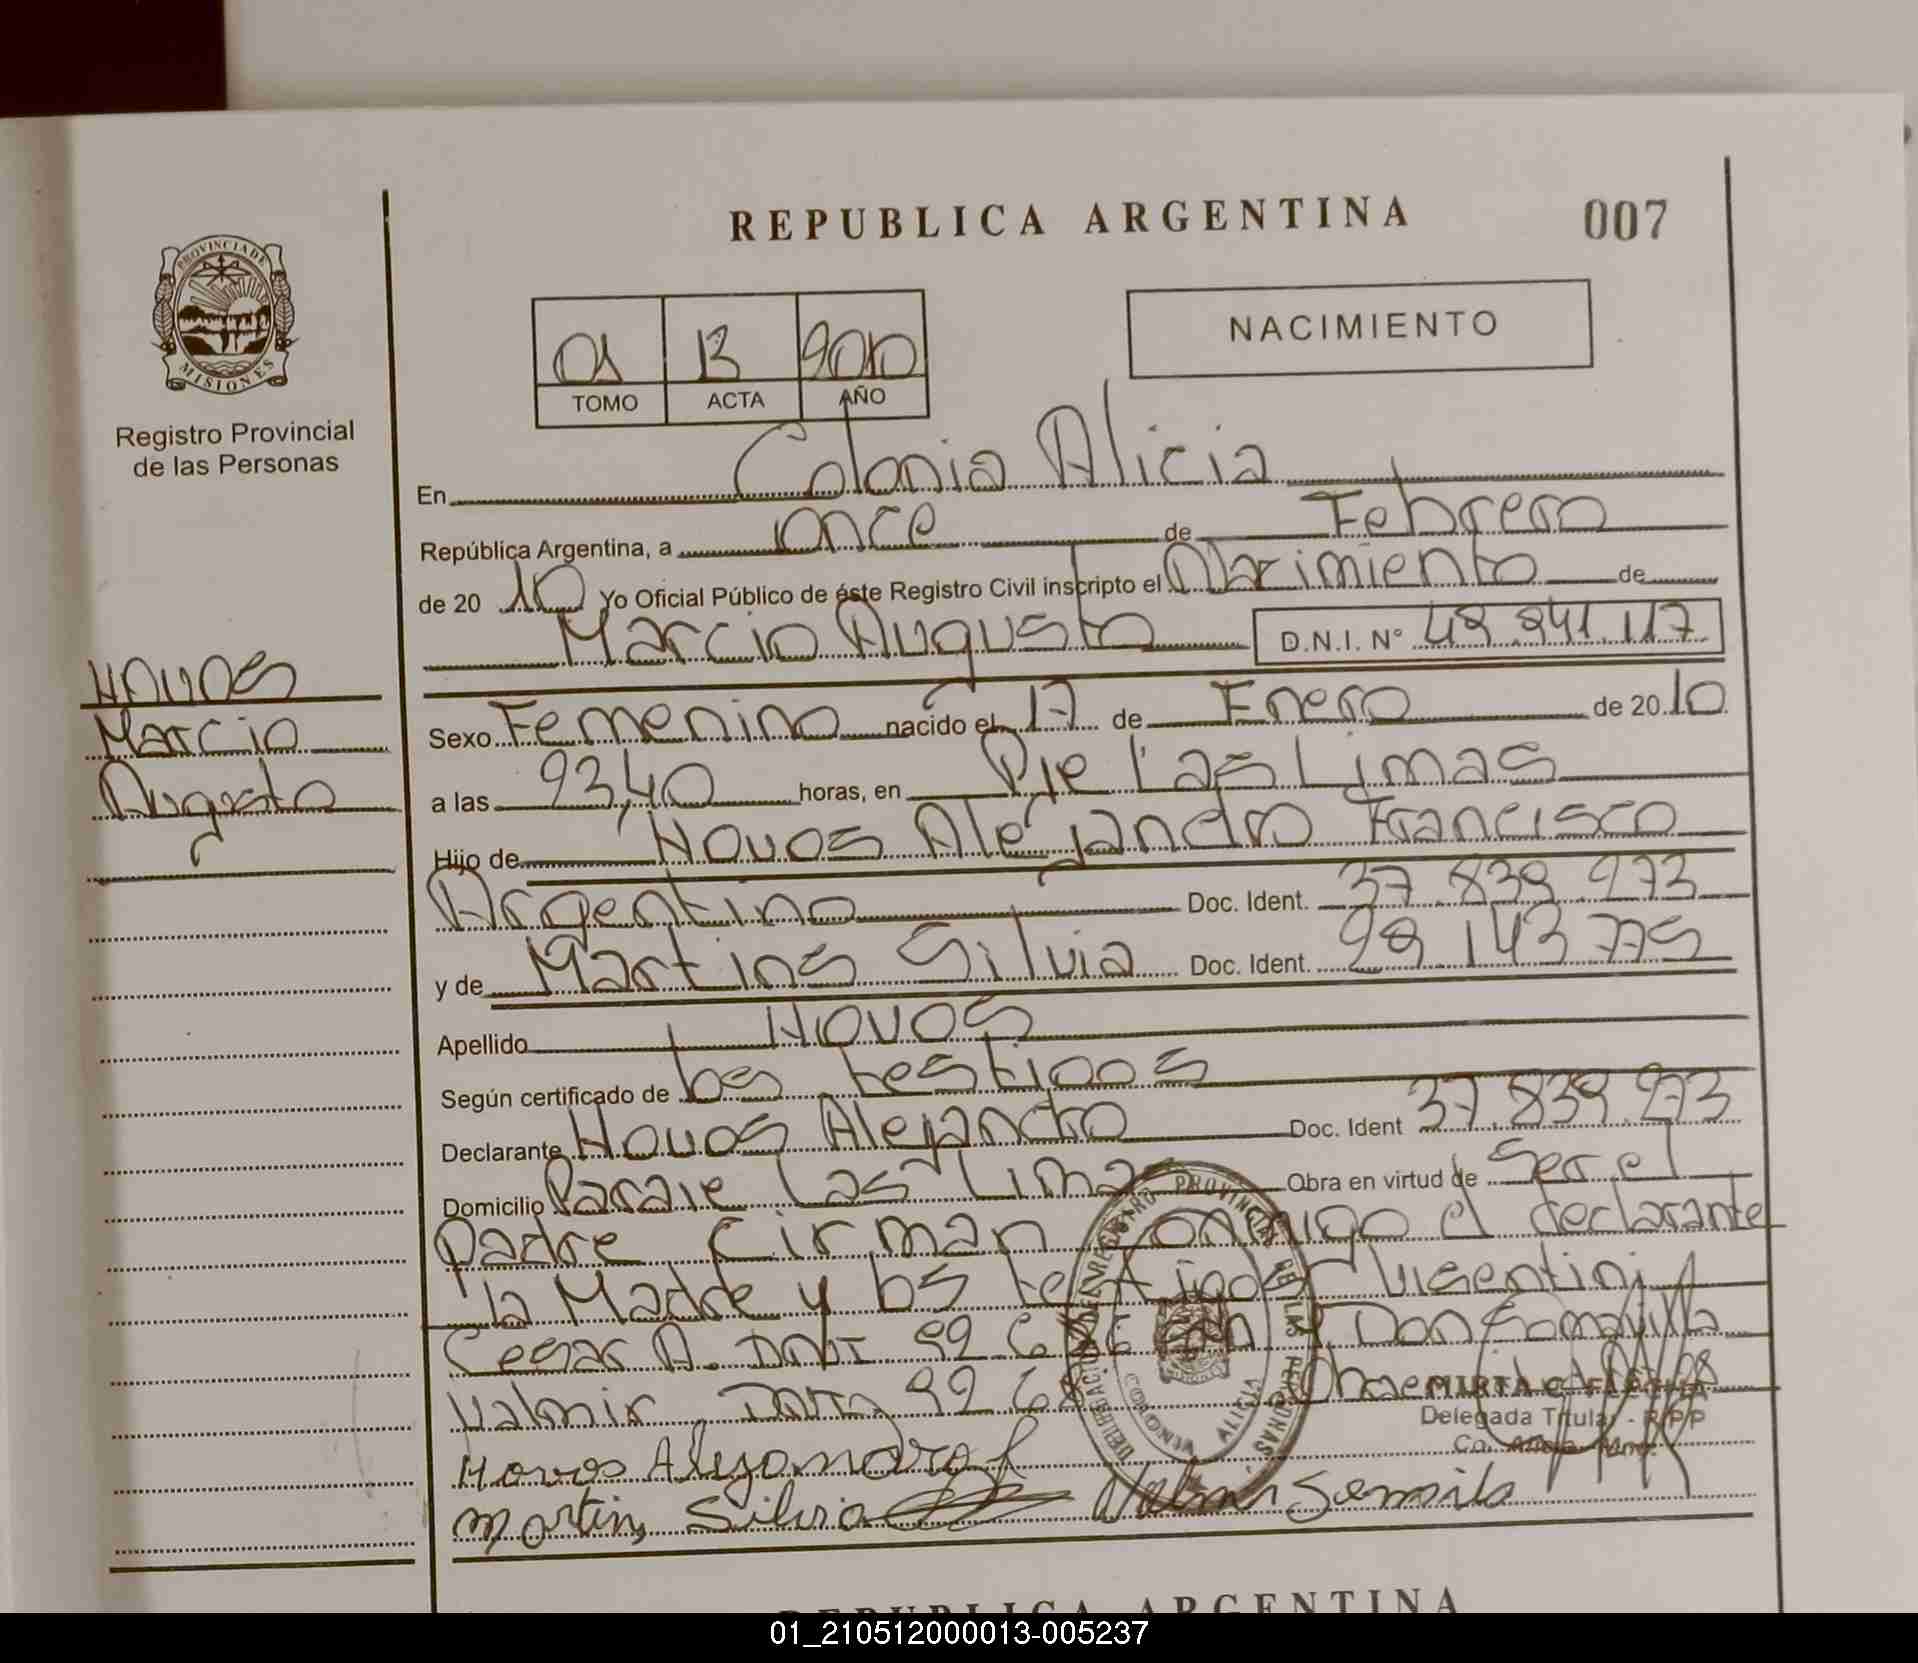 REPUBLICA ARGENTINA
007
PROVINCIA DE
MISIONES
Registro Provincial
de las Personas
01 13 2010
TOMO ACTA AÑO
NACIMIENTO
En Colonia Alicia
República Argentina, a once de Febrero
de 20 10 Yo Oficial Público de éste Registro Civil inscripto el Nacimiento de
Marcio Augusto D.N.I. Nº 49.841.117
Hovos
Marcio
Augusto
Sexo Femenino nacido el 17 de Enero de 20 10
a las 23,40 horas, en Pje Las Limas
Hijo de Hovos Alejandro Francisco
Argentino Doc. Ident. 37.839.273
y de Martins Silvia Doc. Ident. 29 143 775
Apellido Hovos
Según certificado de los testigos
Declarante Hovos Alejandro Doc. Ident 37.839.273
Domicilio Paraje Las Limas Obra en virtud de Ser el
padre Firman conmigo el declarante
la Madre y los testigos Visentini
Cesar A. DNI 22 6
Valmir 22 68
MIRTA C.
Delegada Titular - RPP
Co. Alicia - Mnes.
DELEGACION REGISTRO PROVINCIAL DE LAS PERSONAS
ALICIA
Hovos Alejandro f
Martins Silvia
REPUBLICA ARGENTINA
01_210512000013-005237